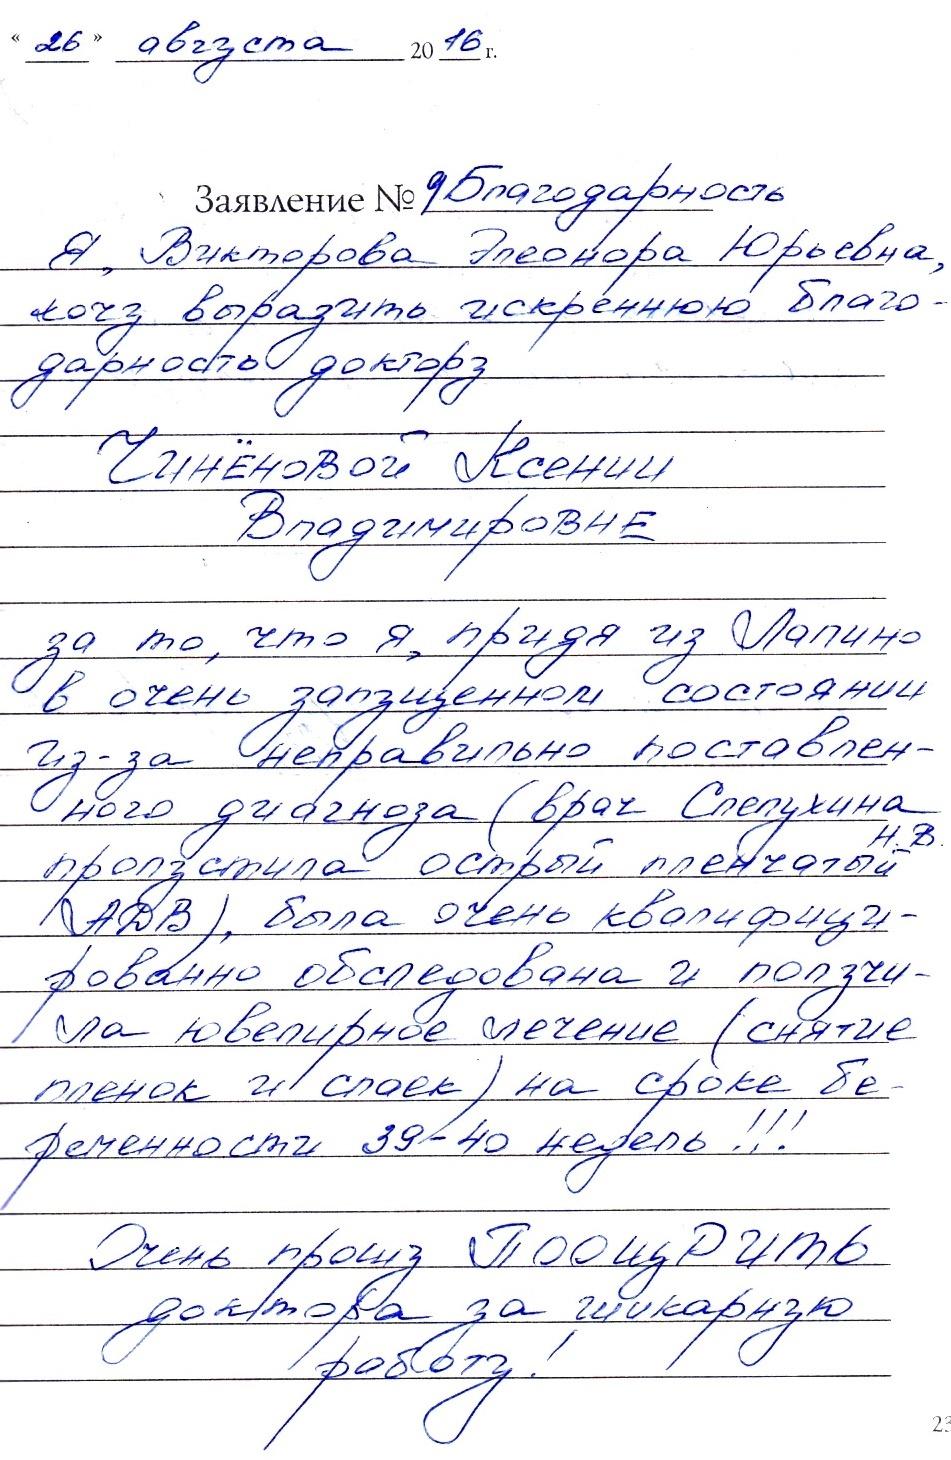 "26" августа 2016 г.
Заявление № 9 Благодарность
Я, Викторова Элеонора Юрьевна,
хочу выразить искреннюю благо-
дарность доктору
Чинёновой Ксении
Владимировне
за то, что я, придя из Лапино
в очень запущенном состоянии
из-за неправильно поставлен-
ного диагноза (врач Слепухина
Н.В.
пропустила острый пленчатый
АДВ), была очень квалифици-
рованно обследована и получи-
ла ювелирное лечение (снятие
пленок и спаек) на сроке бе-
ременности 39-40 недель!!!
Очень прошу ПоощРить
доктора за шикарную
работу!
23